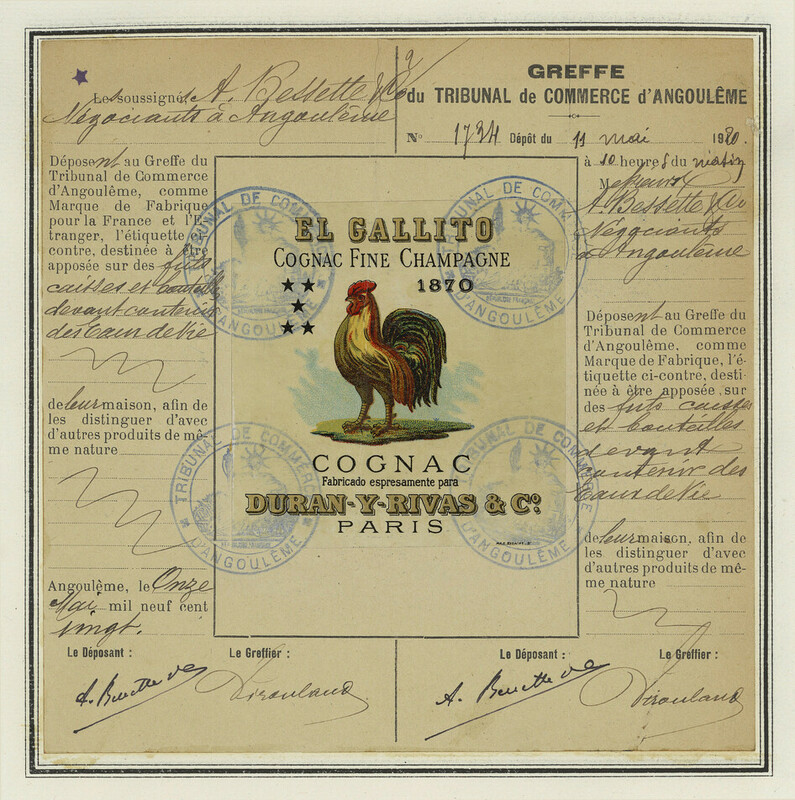 2
Les soussignés A. Bessette & Co
Négociants à Angoulême
GREFFE
du TRIBUNAL de COMMERCE d'ANGOULÊME
No 1734 Dépôt du 11 mai 1920.
à 10 heures du matin
Messieurs
A. Bessette & Co
Négociants
à Angoulême
Déposent au Greffe du
Tribunal de Commerce
d'Angoulême, comme
Marque de Fabrique
pour la France et l'E-
tranger, l'étiquette ci-
contre, destinée à être
apposée sur des fûts
caisses et bouteilles
devant contenir
des Eaux de Vie
de leur maison, afin de
les distinguer d'avec
d'autres produits de mê-
me nature
Angoulême, le Onze
Mai mil neuf cent
vingt.
EL GALLITO
COGNAC FINE CHAMPAGNE
1870
COGNAC
Fabricado espresamente para
DURAN-Y-RIVAS & Co.
PARIS
TRIBUNAL DE COMMERCE
D'ANGOULÊME
TRIBUNAL DE COMMERCE
D'ANGOULÊME
TRIBUNAL DE COMMERCE
D'ANGOULÊME
TRIBUNAL DE COMMERCE
D'ANGOULÊME
Déposent au Greffe du
Tribunal de Commerce
d'Angoulême, comme
Marque de Fabrique, l'é-
tiquette ci-contre, desti-
née à être apposée sur
des fûts caisses
et bouteilles
devant
contenir des
Eaux de Vie
de leur maison, afin de
les distinguer d'avec
d'autres produits de mê-
me nature
Le Déposant : Le Greffier :
A. Bessette & Co
Le Déposant : Le Greffier :
A. Bessette & Co